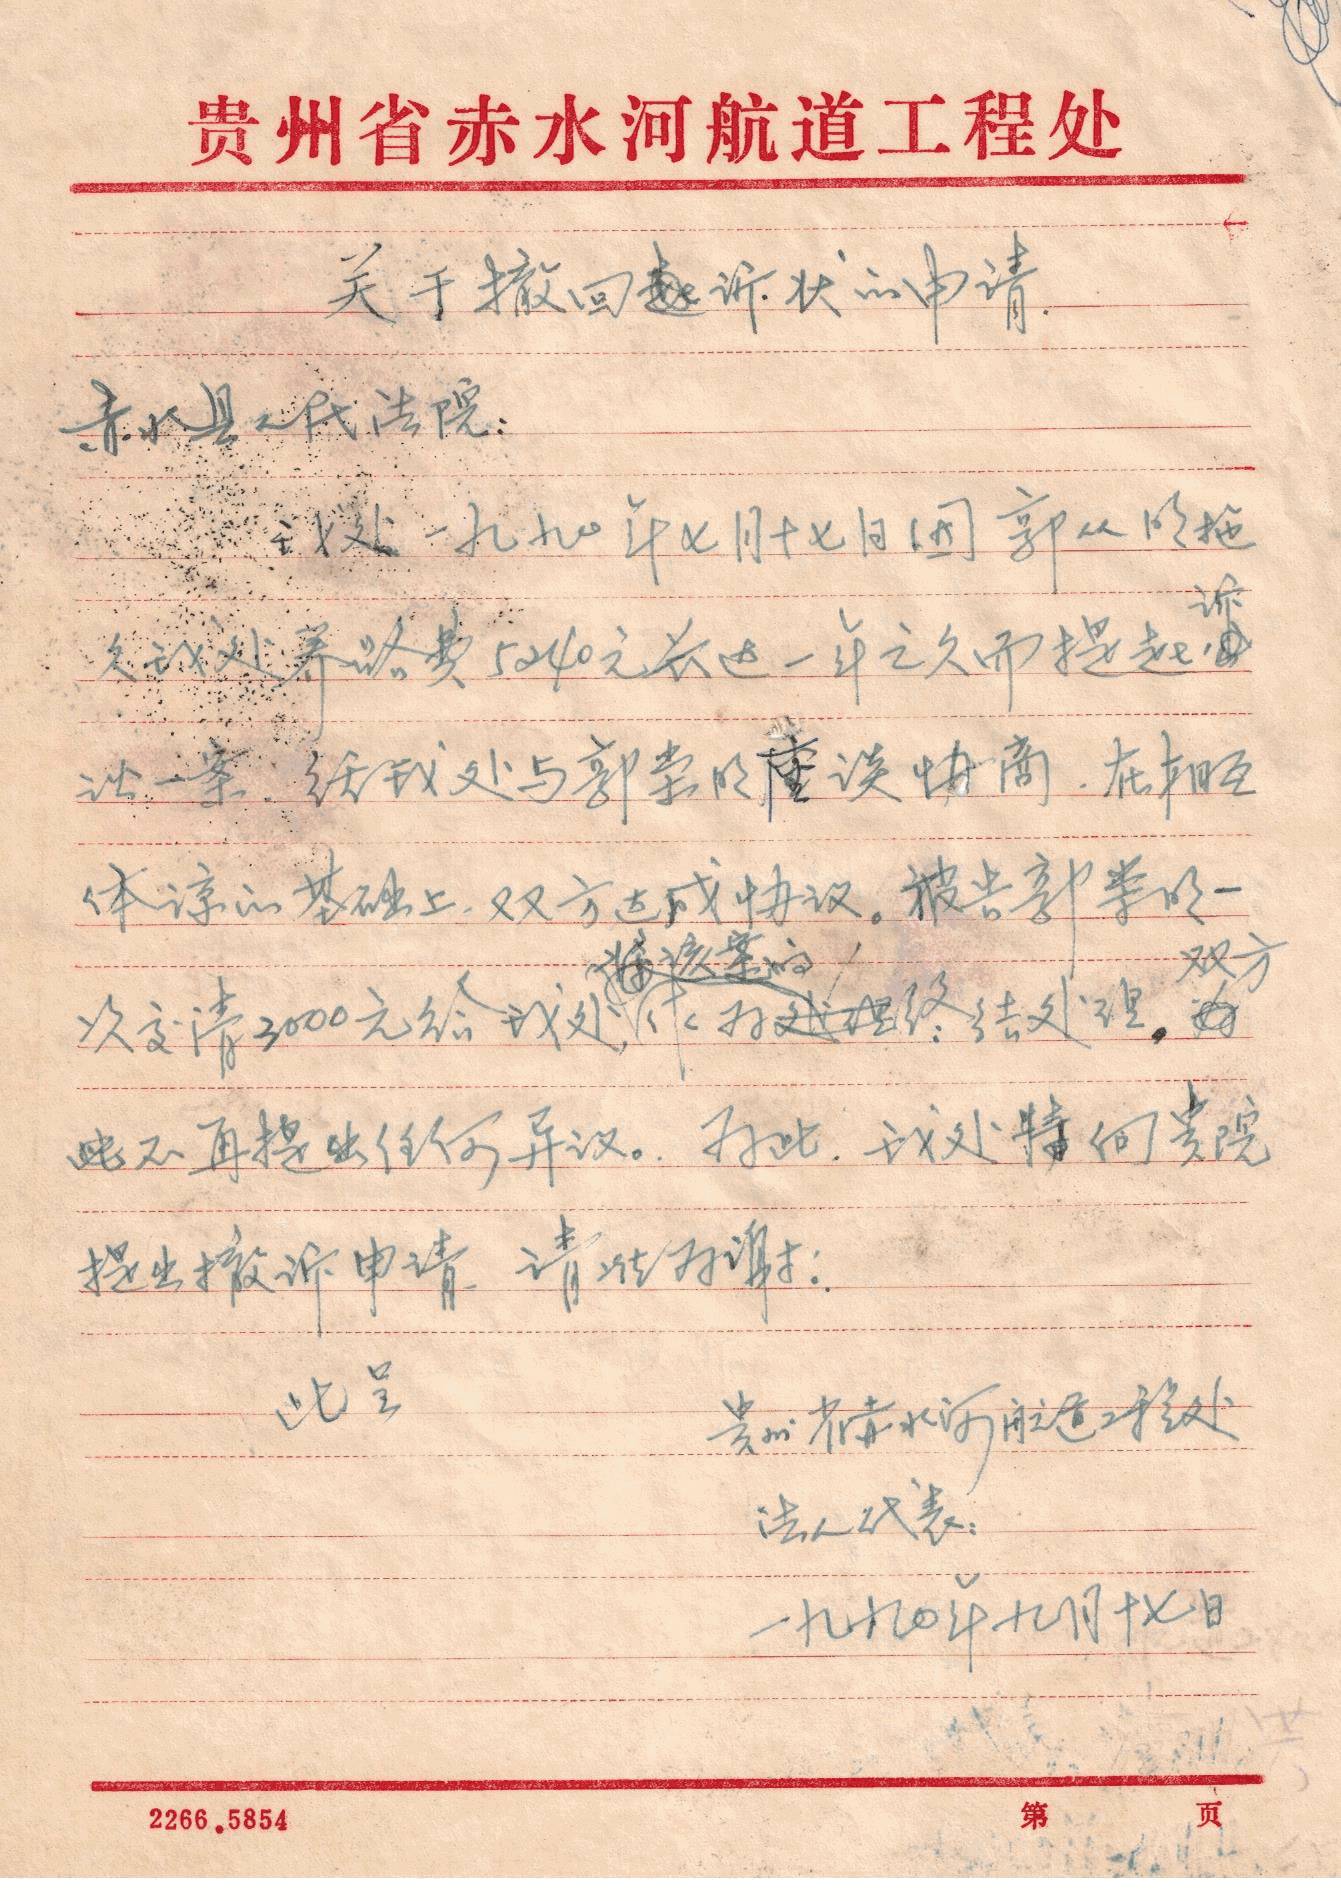 贵州省赤水河航道工程处
关于撤回起诉状的申请.
赤水县人民法院:
我处一九九〇年七月十七日因郭从明拖
欠我处养路费5240元长达一年之久而提起诉
讼一案.经我处与郭崇明座谈协商.在相互
体谅的基础上.双方达成协议。被告郭崇明一
将该案的 双方
次交清3000元给我处,作为处理终结处理。
不再提出任何异议。.为此.我处特向贵院
提出撤诉申请.请准为谢!
此呈
贵州省赤水河航道工程处
法人代表:
一九九〇年九月十七日
2266.5854 第 页